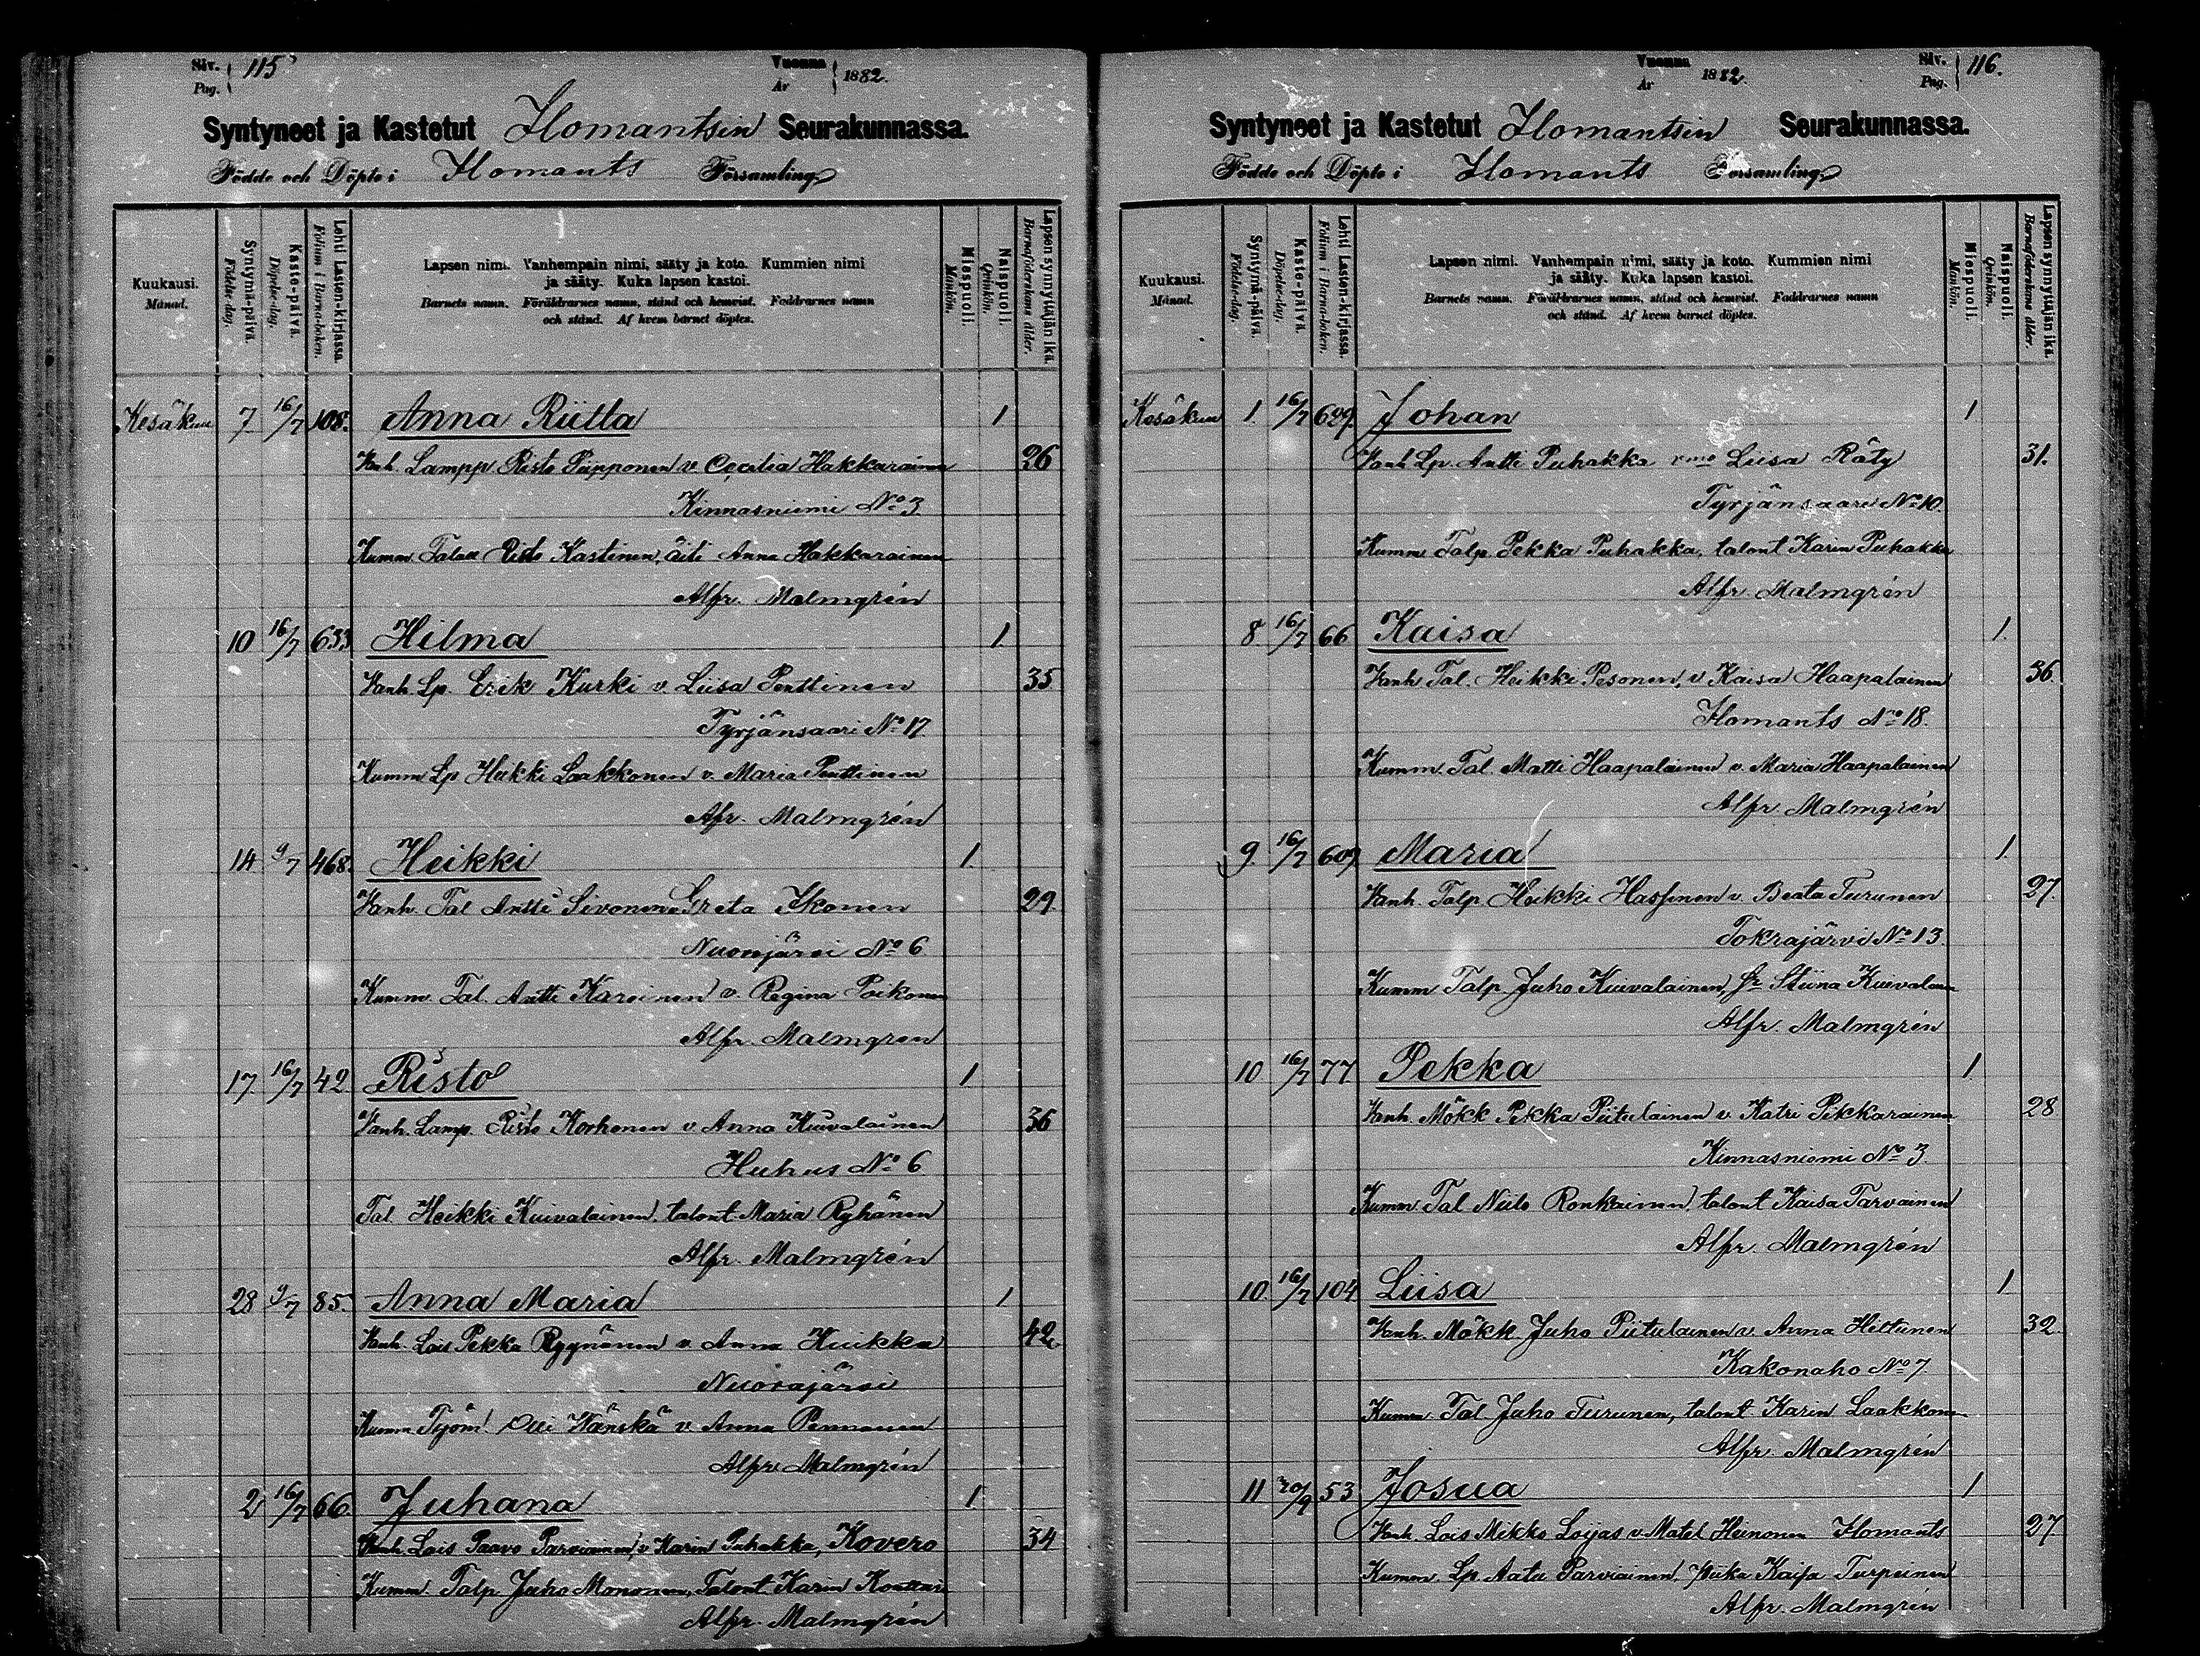 Siv. Pag. 115
Vuonna År 1882.
Syntyneet ja Kastetut Ilomantsin Seurakunnassa.
Födde och Döpte i Ilomants Församling
Kuukausi. Månad.
Syntymä-päivä. Födelse-dag.
Kaste-päivä. Döpelse-dag.
Lehti Lasten-kirjassa. Folium i Barna-boken.
Lapsen nimi. Vanhempain nimi, sääty ja koto. Kummien nimi
ja sääty. Kuka lapsen kastoi.
Barnets namn. Föräldrarnes namn, stånd och hemvist. Faddrarnes namn
och stånd. Af hvem barnet döptes.
Miespuoli. Mankön.
Naispuoli. Qvinkön.
Lapsen synnyttäjän ikä. Barnaföderskans ålder.
Kesäkuu 7. 16/7 108. Anna Riitta 1
Vanh. Lampp Risto Piipponen v. Cecilia Hakkarainen 26
Kinnasniemi No 3.
Kumm. Risto Kastinen, äiti Anna Hakkarainen
Alfr. Malmgrén
10 16/7 633 Hilma 1.
Vanh. Lp. Erik Kurki v. Liisa Penttinen 35
Tyrjänsaari No 17.
Kumm Lp Heikki Laakkonen v. Maria Penttinen
Afr. Malmgrén
14 9/7 468. Heikki 1.
Vanh. Tal Antti Sivonen v Greta Ikonen 29.
Nuorijärvi No 6.
Kumm. Tal. Antti Karvinen v. Regina Poikonen
Alfr. Malmgren
17. 16/7 42 Risto 1
Vanh. Lamp. Risto Korhonen v Anna Kuivalainen 36
Huhus No 6
Tal. Heikki Kuivalainen, talont. Maria Ryhänen
Alfr. Malmgrén
28 9/7 85. Anna Maria 1
Vanh. Lois Pekka Ryynänen v. Anna Kuikka 42
Nuorajärvi
Kumm Työm. Olli Wänskä v. Anna Pennanen
Alfr. Malmgrén
2 16/7 66. Juhana 1
Vanh. Lois Paavo Parviainen, v Karin Puhakka, Kovero 34
Kumm. Talp. Juho Mononen, Talont. Karin
Alfr. Malmgrén
Siv. Pag. 116.
Vuonna År 1882.
Syntyneet ja Kastetut Ilomantsin Seurakunnassa.
Födde och Döpte i Ilomants Församling
Kuukausi. Månad.
Syntymä-päivä. Födelse-dag.
Kaste-päivä. Döpelse-dag.
Lehti Lasten-kirjassa. Folium i Barna-boken.
Lapsen nimi. Vanhempain nimi, sääty ja koto. Kummien nimi
ja sääty. Kuka lapsen kastoi.
Barnets namn. Föräldrarnes namn, stånd och hemvist. Faddrarnes namn
och stånd. Af hvem barnet döptes.
Miespuoli. Mankön.
Naispuoli. Qvinkön.
Lapsen synnyttäjän ikä. Barnaföderskans ålder.
Kesäkuu 1. 16/7 629. Johan 1.
Vanh Lp. Antti Puhakka vmo Liisa Räty 31.
Tyrjänsaari No 10.
Kumm Talp. Pekka Puhakka, talont Karin Puhakka
Alfr. Malmgrén
8. 16/7 66 Kaisa 1.
Vanh Tal. Heikki Pesonen, v Kaisa Haapalainen 36.
Ilomants No 18.
Kumm. Tal. Matti Haapalainen v. Maria Haapalainen
Alfr. Malmgrén
9. 16/7 609. Maria 1.
Vanh. Talp Heikki Hassinen v. Beata Turunen 27.
Tokrajärvi No 13.
Kumm Talp Juho Kuivalainen, Stiina Kuivalainen
Alfr. Malmgrén
10 16/7 77 Pekka 1.
Vanh. Mökk Pekka Piitulainen v. Katri Pikkarainen 28
Kinnasniemi No 3.
Kumm. Tal Niilo Ronkainen, talont Kaisa Tarvainen
Alfr. Malmgrén
10. 16/7 104 Liisa 1
Vanh. Mökk. Juho Piitulainen v. Anna Hiltunen 32.
Kakonaho No 7.
Kumm. Tal Juho Turunen, talont Karin Laakkonen
Alfr. Malmgrén
11 20/9 53 Josua 1
Vanh. Lois Mikko Loijas v. Matel Heinonen Ilomants 27
Kumm. Lp. Aatu Parviainen, Kaisa Turpeinen
Alfr. Malmgrén